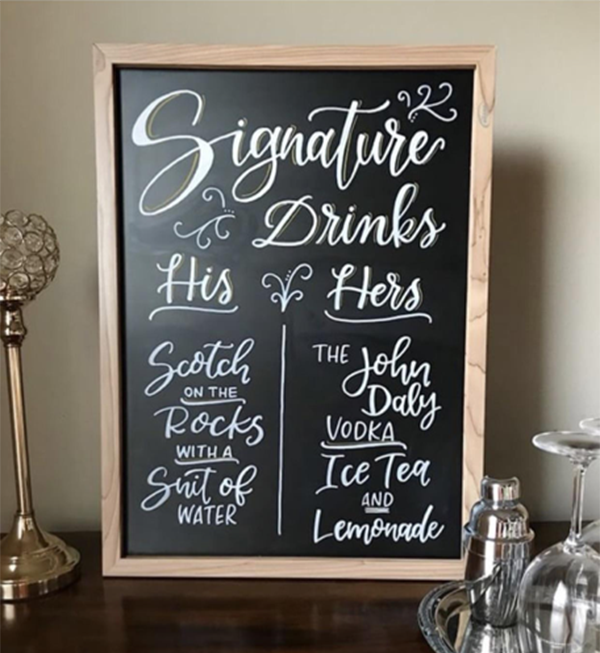 Signature
Drinks
His
Scotch
ON THE
Rocks
WITH A
Snit of
WATER
Hers
THE John
Daly
VODKA
Ice Tea
AND
Lemonade